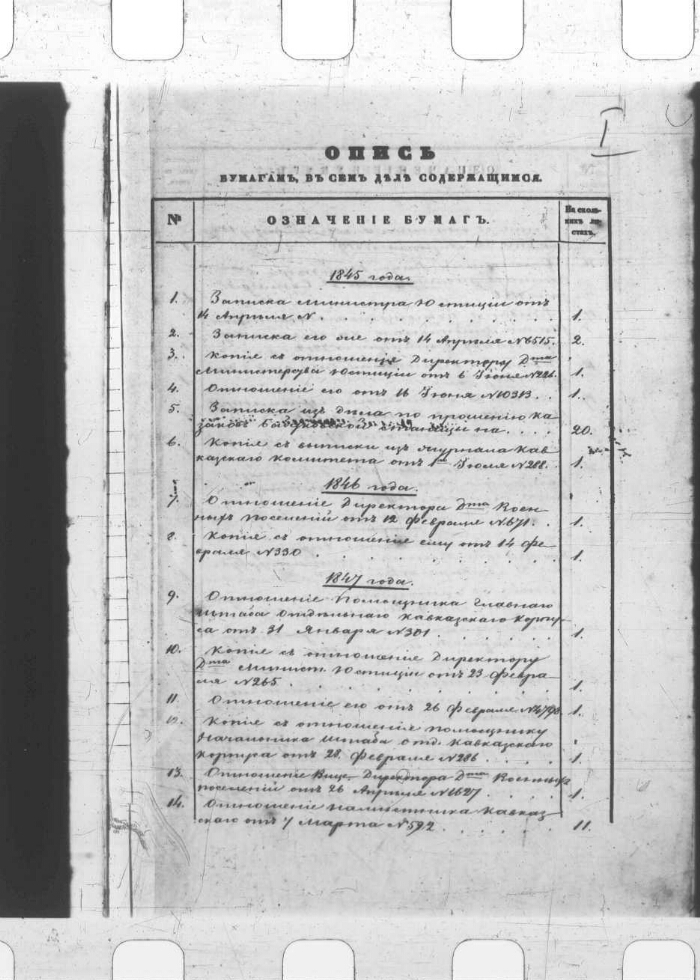 I
ОПИСЬ
БУМАГАМЪ, ВЪ СЕМЪ ДѢЛѢ СОДЕРЖАЩИМСЯ.
№ ОЗНАЧЕНІЕ БУМАГЪ. На сколь-
кихъ ли-
стахъ.
1845 года.
1. Записка Министра Юстиціи отъ
14 Апрѣля № . . . . . . . 1.
2. Записка его же отъ 14 Апрѣля №6515. 2.
3. Копія съ отношенія Директору Дта
Министерства Юстиціи отъ 6 Іюня №221. 1.
4. Отношеніе его отъ 16 Іюня №10313. . 1.
5. Записка изъ дѣла по прошенію ка-
заковъ станицы на . . . . 20.
6. Копія съ выписки изъ журнала Кав-
казскаго Комитета отъ Іюля №288. 1.
1846 года.
7. Отношеніе Директора Дта Воен-
ныхъ поселеній отъ 12 Февраля №671. . 1.
8. Копія съ отношенія ему отъ 14 Фе-
враля №330 . . . . . . . 1.
1847 года.
9. Отношеніе Помощника Главнаго
Штаба Отдѣльнаго Кавказскаго Корпу-
са отъ 31 Января №301 . . . . . 1.
10. Копія съ отношенія Директору
Дта Минист. Юстиціи отъ 23 Февра-
ля №265. . . . . . . . 1.
11. Отношеніе его отъ 26 Февраля №4793. 1.
12. Копія съ отношенія помощнику
Начальника Штаба Отд. Кавказскаго
Корпуса отъ 28 Февраля №286 . . . 1.
13. Отношеніе Вице-Директора Дта Военныхъ
поселеній отъ 26 Апрѣля №1627 . . . . 1.
14. Отношеніе намѣстника Кавказ-
скаго отъ 7 Марта №592 . . . . . 11.